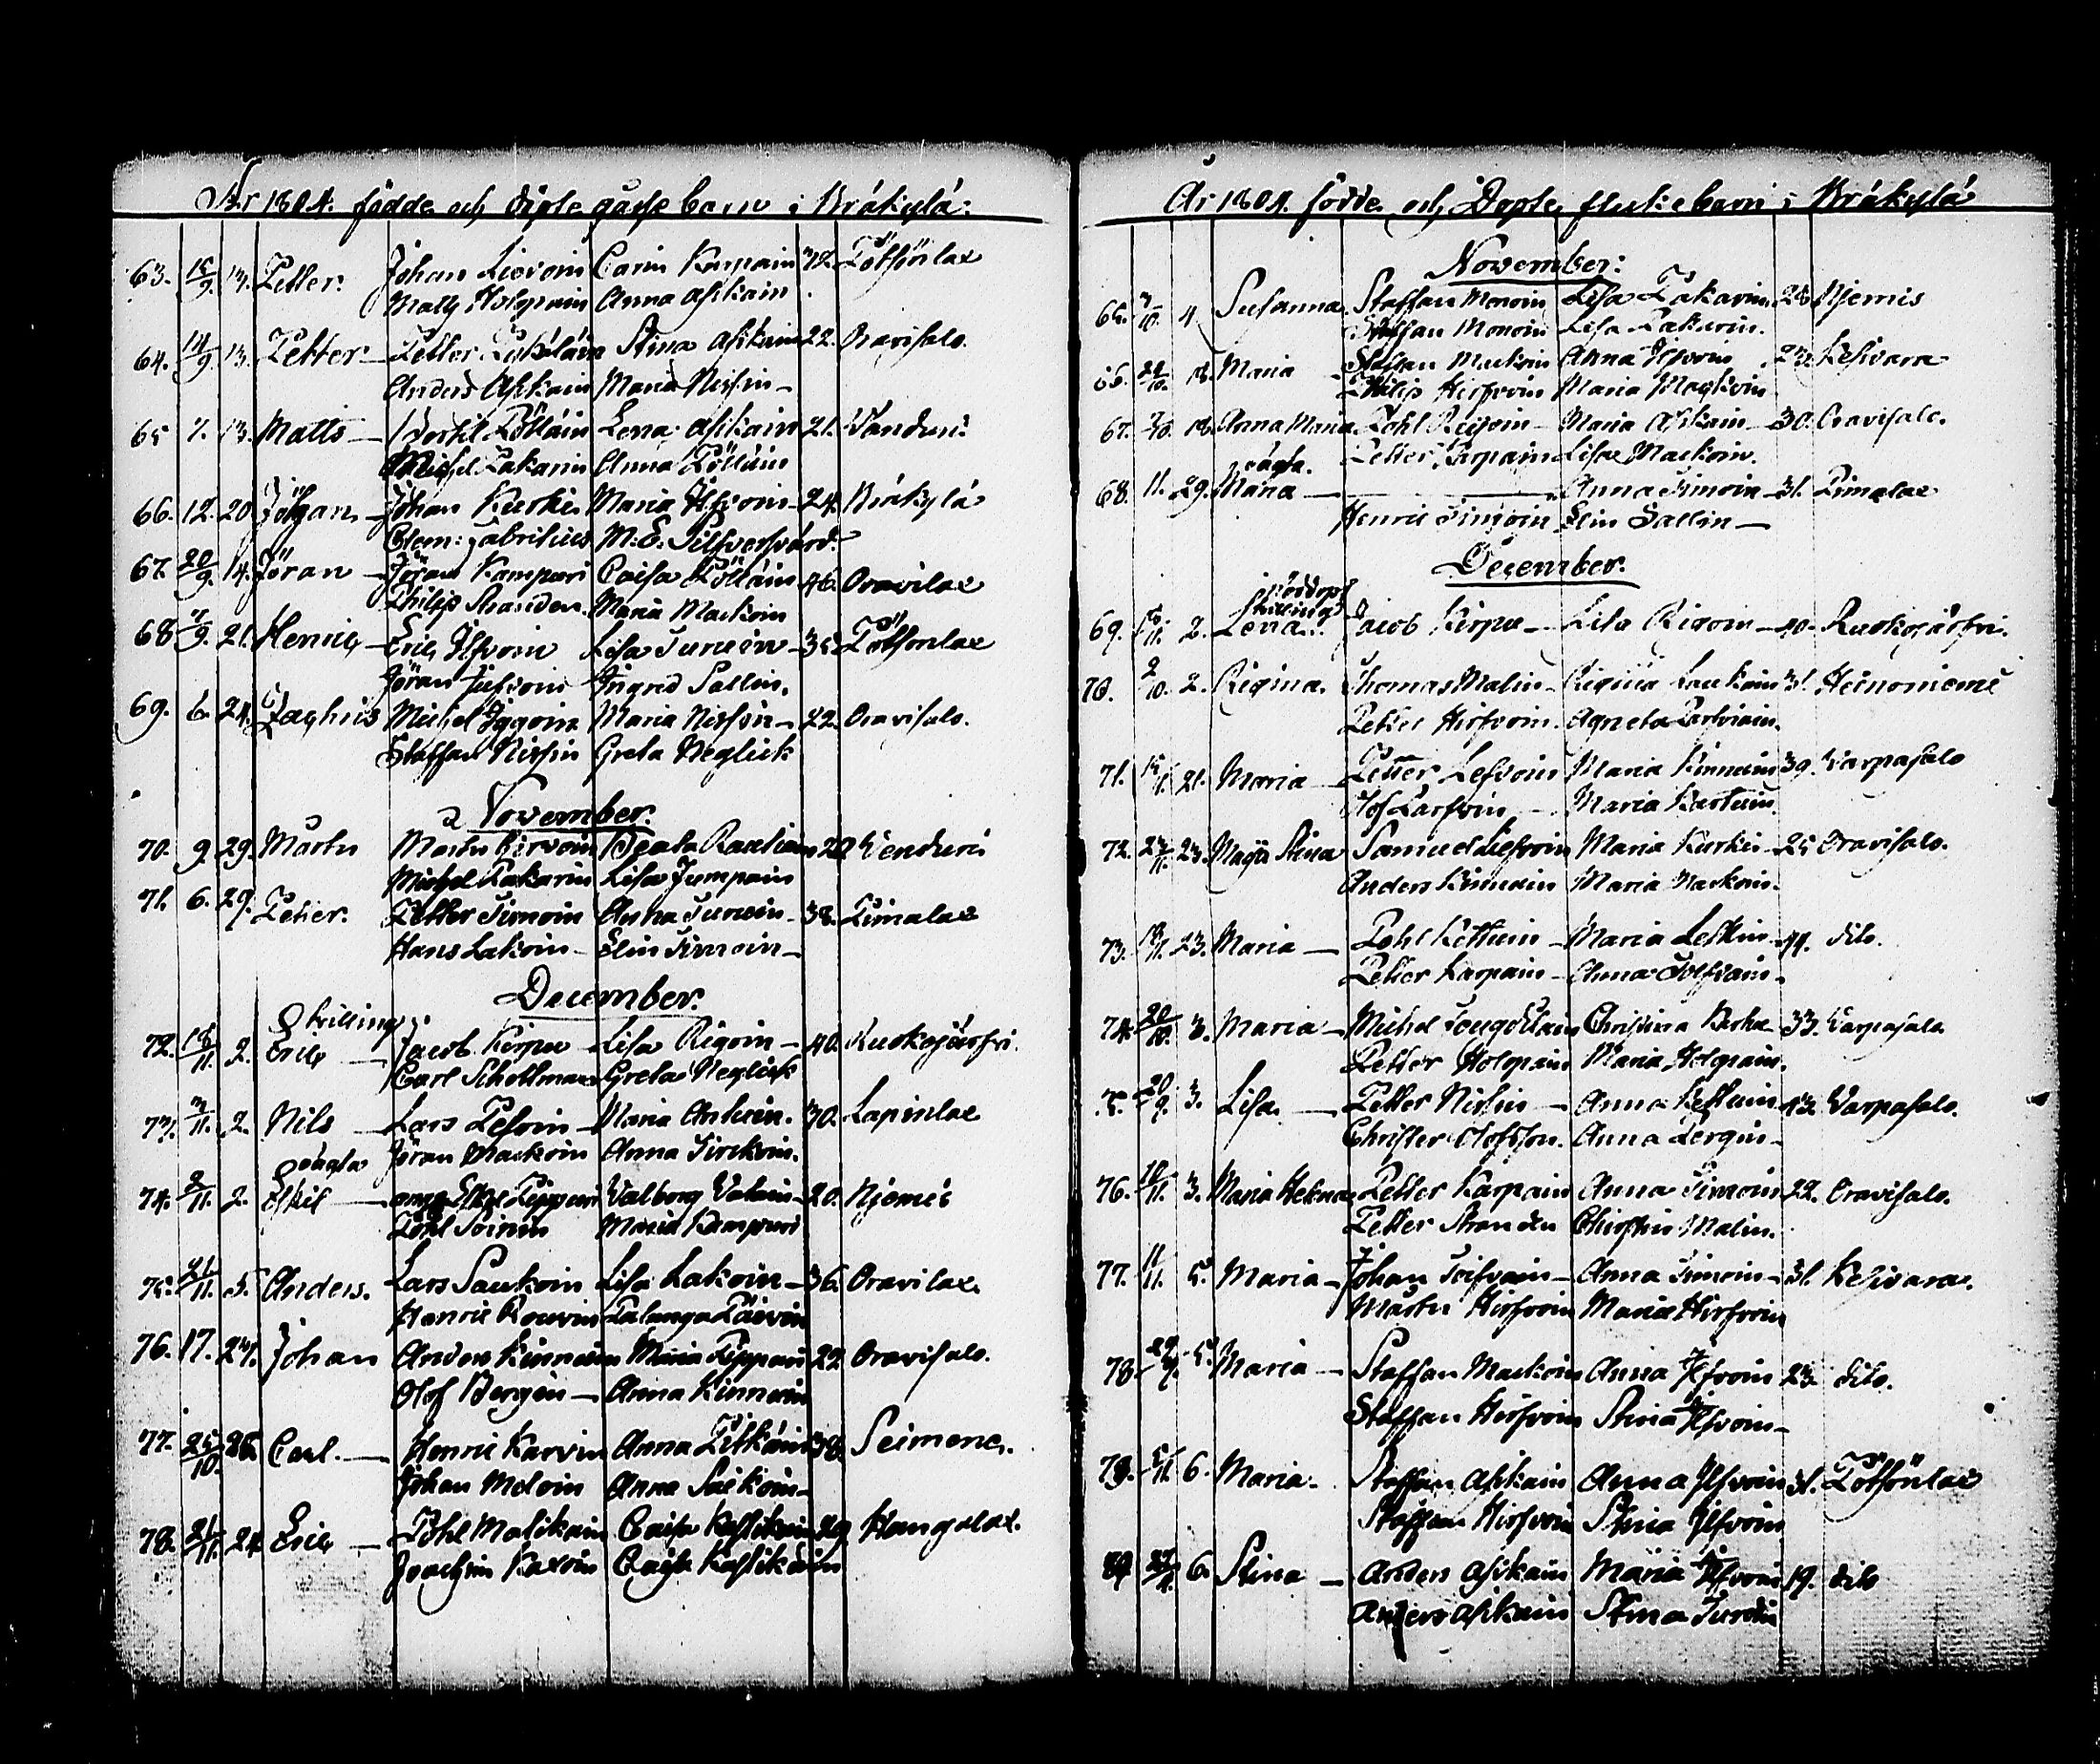 År 1804. födde och döpte gåsse barn i Bråkylä:
63. 15/9. 13. Petter. Johan Lievoin Carin Karpain 42. Pötsönlax
Matts Holopain Anna Asikain
64. 14/9. 13. Petter Petter Stina Asikain 22. Oravisalo.
Anders Asikain Maria Nissin
65 7. 13. Matts Bertil Pölläin Lena Asikain 21. Vänduri
Michel Pakarin Anna Pölläin
66. 12. 20. Johan Johan Kurki Maria Ilvoin 24. Bråkylä
Clem: Fabritius M: E:
67. 20/9 14. Jöran Jöran Kampuri Caisa Pölläin 46. Oravilax
Philip Stranden. Maria Mackoin
68 9. 21. Henric Eric Ilfvoin Lisa Turuin 35. Pötsönlax
Jöran Ilfvoin Ingrid Sallin.
69. 6. 24. Zachris Michel Iggoin Maria Nissin 22. Oravisalo.
Staffan Nissin Greta Neglick
November:
70. 9. 29. Mårtn Mårtn Hirvoin Beata 20 Venduri
Michel Pakarin Lisa Jumpain
71. 6. 29. Petter. Petter Simoin Anna Turuin 38. Pimalax
Hans Lakoin Elin Simoin
December.
Tvilling
72. 18/11. 2. Eric Jacob Kirpu Lisa Rigoin 40. Ruokojärfvi.
Carl Schottman Greta Neglick
73. 3/11. 2. Nils Lars Pesoin Maria Antuin. 30. Lapinlax
Jöran Mackoin Anna
oägta
74. 2/11. 2. Eskil Valborg 20. Njemis
Påhl Soinin Maria Kampuri
75. 21/11. 5. Anders. Lars Saukoin Lisa Lakoin 36. Oravilax.
Henric Rouvin Päivin
76. 17. 24. Johan Anders Kinnuin Maria Pippuri 22 Oravisalo.
Olof Bergin Anna Kinnuin
77. 25/10. 26. Carl. Henric Karvin Anna Pitkäin 38. Seimenä.
Johan Meloin Anna Saikoin
78. 21/11. 24 Eric Påhl Malikain Caisa 29 Hangalax.
Joachim Kaxoin Caisa
År 1804. födde och Döpte flickebarn i Bråkylä
November:
65. 7/10. 4 Susanna Staffan Monoin Lisa Pakarin 28 Njemis
Staffan Monoin Lisa Pakarin.
66. 22/10. 18. Maria Staffan Mackoin Anna Ilfvoin 23. Kesivara
Philip Hirfvoin Maria Mackoin
67. 18 Anna Maria Påhl Rigoin Maria Asikain 30. Oravisalo.
Petter Karpain Lisa Mackoin.
oägta.
68. 11. 29. Maria Anna Simoin 31. Pimalax
Henric Simoin Elin Sallin
December.
nöddöpt
tvilling
69. 18/11. 2. Lena Jacob Kirpu Lisa Rigoin 40. Ruokojärfvi.
70. 2/10. 2. Regina. Thomas Malin Regina Laukain 31. Heinoniemi
Petter Hirfvoin. Agneta Parfviain.
71. 21. Maria Petter Lesvoin Maria Kinnuin 39. Varpasalo
Olof Parfvin Maria Karhuin.
72. 23/11. 23. Magda Stina Samuel Liefvoin Maria Kurki 25 Oravisalo.
Anders Kinnuin Maria Mackoin.
73. 18/11. 23. Maria Påhl Kettuin Maria Leskin 44. dito.
Petter Karpain Anna Toifvain
74. 20/10. 3. Maria Michel Christina 33. Varpasalo
Petter Holopain Maria Holopain.
75. 20/9. 3. Lisa. Petter Nissin Anna Kettuin 43. Varpasalo.
Christer Olofsson. Anna Bergin
76. 18/11. 3. Maria Helena Petter Karpain Anna Simoin 22. Oravisalo.
Petter Stranden Christin Malin.
77. 11/11. 5. Maria Johan Toifvain Anna Simoin 31. Kesivara.
Mårtn Hirfvoin Maria Hirfvoin
78. 5. Maria Staffan Mackoin Anna Ilfvoin 23. dito.
Staffan Hirfvoin Stina Ilfvoin
79. 5/11. 6. Maria. Staffan Asikain Anna Ilfvoin 31. Pötsönlax
Staffan Hirfvoin Stina Ilfvoin
80. 6. Stina Anders Asikain Maria Ilfvoin 19. dito
Anders Asikain Stina Turuin